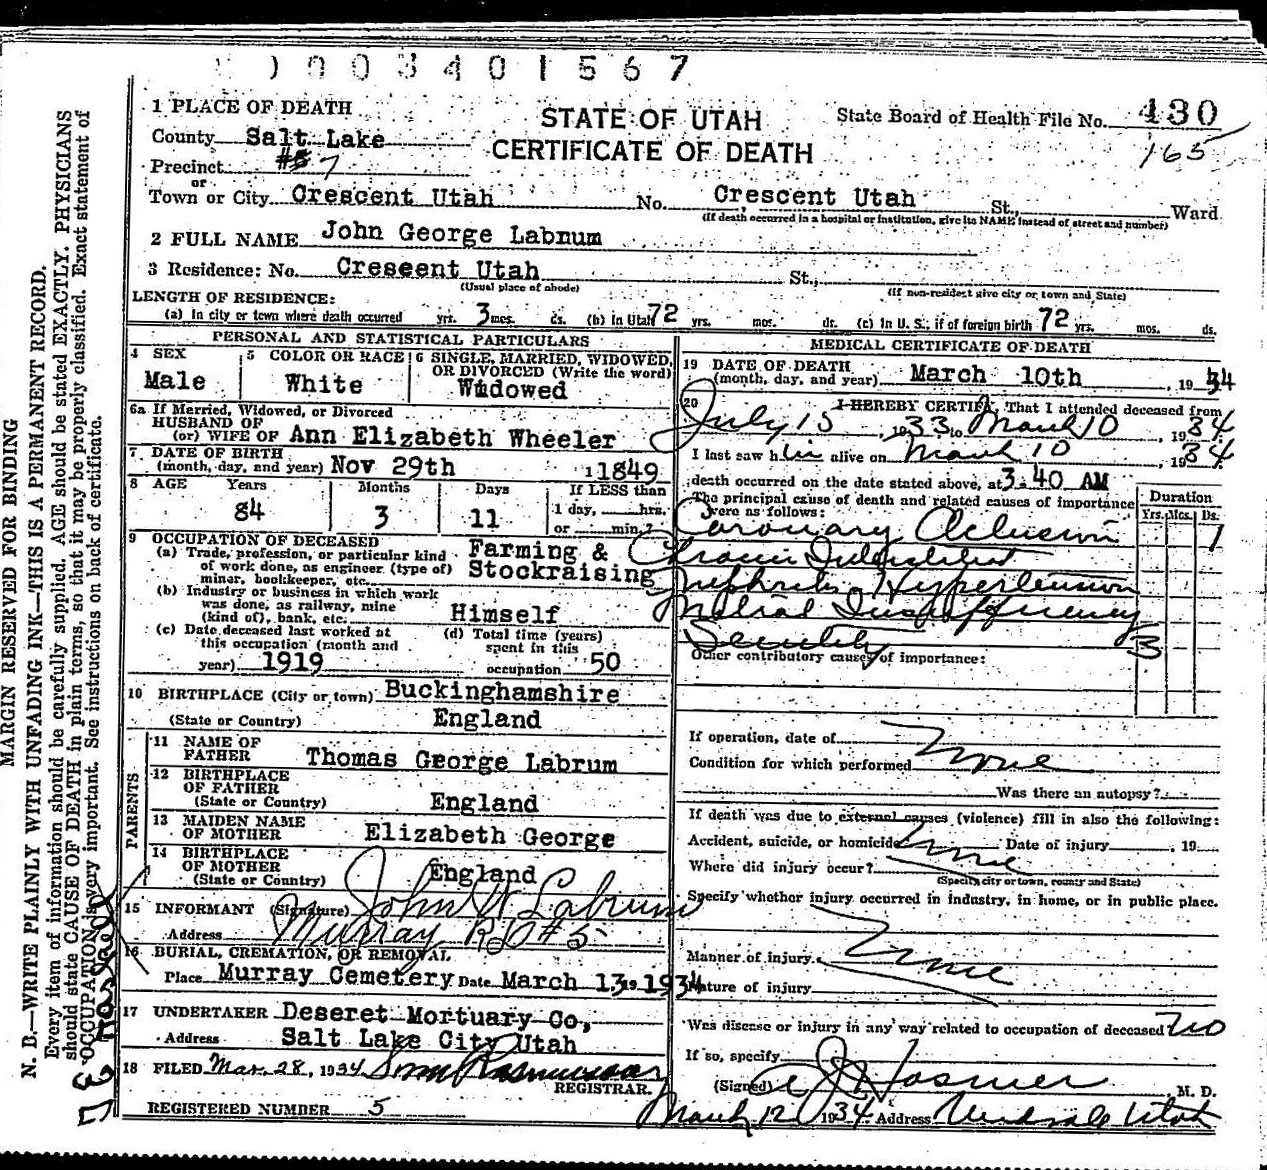 0003401567
1 PLACE OF DEATH
STATE OF UTAH
CERTIFICATE OF DEATH
State Board of Health File No. 430
165
County Salt Lake
Precinct #5 7
or
Town or City Crescent Utah No. Crescent Utah St., Ward
(If death occurred in a hospital or institution, give its NAME instead of street and number)
2 FULL NAME John George Labnum
3 Residence: No. Crescent Utah St.,
(Usual place of abode) (If non-resident give city or town and State)
LENGTH OF RESIDENCE:
(a) In city or town where death occurred yrs. 3 mos. ds. (b) In Utah 72 yrs. mos. ds. (c) In U. S., if of foreign birth 72 yrs. mos. ds.
PERSONAL AND STATISTICAL PARTICULARS
4 SEX
Male
5 COLOR OR RACE
White
6 SINGLE, MARRIED, WIDOWED,
OR DIVORCED (Write the word)
Widowed
6a If Married, Widowed, or Divorced
HUSBAND OF
(or) WIFE OF Ann Elizabeth Wheeler
7 DATE OF BIRTH
(month, day, and year) Nov 29th 1849
8 AGE Years Months Days If LESS than
84 3 11 1 day, hrs.
or min.?
9 OCCUPATION OF DECEASED
(a) Trade, profession, or particular kind
of work done, as engineer (type of)
miner, bookkeeper, etc.
Farming &
Stockraising
(b) Industry or business in which work
was done, as railway, mine
(kind of), bank, etc. Himself
(c) Date deceased last worked at
this occupation (month and
year) 1919
(d) Total time (years)
spent in this
occupation 50
10 BIRTHPLACE (City or town) Buckinghamshire
(State or Country) England
PARENTS
11 NAME OF
FATHER Thomas George Labrum
12 BIRTHPLACE
OF FATHER
(State or Country) England
13 MAIDEN NAME
OF MOTHER Elizabeth George
14 BIRTHPLACE
OF MOTHER
(State or Country) England
15 INFORMANT (Signature) John W Labrum
Address Murray RD #5
16 BURIAL, CREMATION, OR REMOVAL
Place Murray Cemetery Date March 13 19 1934
17 UNDERTAKER Deseret Mortuary Co,
Address Salt Lake City Utah
18 FILED Mar. 28, 1934
REGISTRAR.
REGISTERED NUMBER 5
MEDICAL CERTIFICATE OF DEATH
19 DATE OF DEATH
(month, day, and year) March 10th, 1934
20 I HEREBY CERTIFY, That I attended deceased from
July 15, 1933 to March 10, 1934
I last saw h im alive on March 10 1934
death occurred on the date stated above, at 3:40 AM
The principal cause of death and related causes of importance
were as follows:
Duration
Yrs. Mos. Ds.
Coronary Oclusion 1
Chronic Interstitial
Nephritis Hypertension
Mitral Insufficiency
Senility 3
Other contributory causes of importance:
If operation, date of
Condition for which performed None
Was there an autopsy?
If death was due to external causes (violence) fill in also the following:
Accident, suicide, or homicide None Date of injury 19
Where did injury occur?
(Specify city or town, county and State)
Specify whether injury occurred in industry, in home, or in public place.
Manner of injury None
Nature of injury
Was disease or injury in any way related to occupation of deceased no
If so, specify
(Signed) Hosmer M. D.
March 12 1934 Address Midvale Utah
MARGIN RESERVED FOR BINDING
N. B.—WRITE PLAINLY WTH UNFADING INK—THIS IS A PERMANENT RECORD.
Every item of information should be carefully supplied. AGE should be stated EXACTLY. PHYSICIANS
should state CAUSE OF DEATH in plain terms, so that it may be properly classified. Exact statement of
OCCUPATION is very important. See instructions on back of certificate.